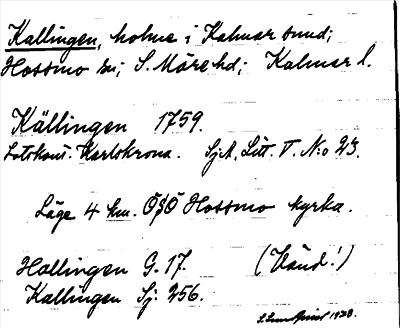 Kallingen, holme i Kalmar sund;
Hossmo sn; S. Möre hd; Kalmar l.
Källingen 1759.
Lotskont. Karlskrona. Sj.A. Litt. T. N:o 23.
Läge 4 km. OSO Hossmo kyrka.
Hallingen G. 17. (Vänd!)
Kallingen Sj: 256.
1928.